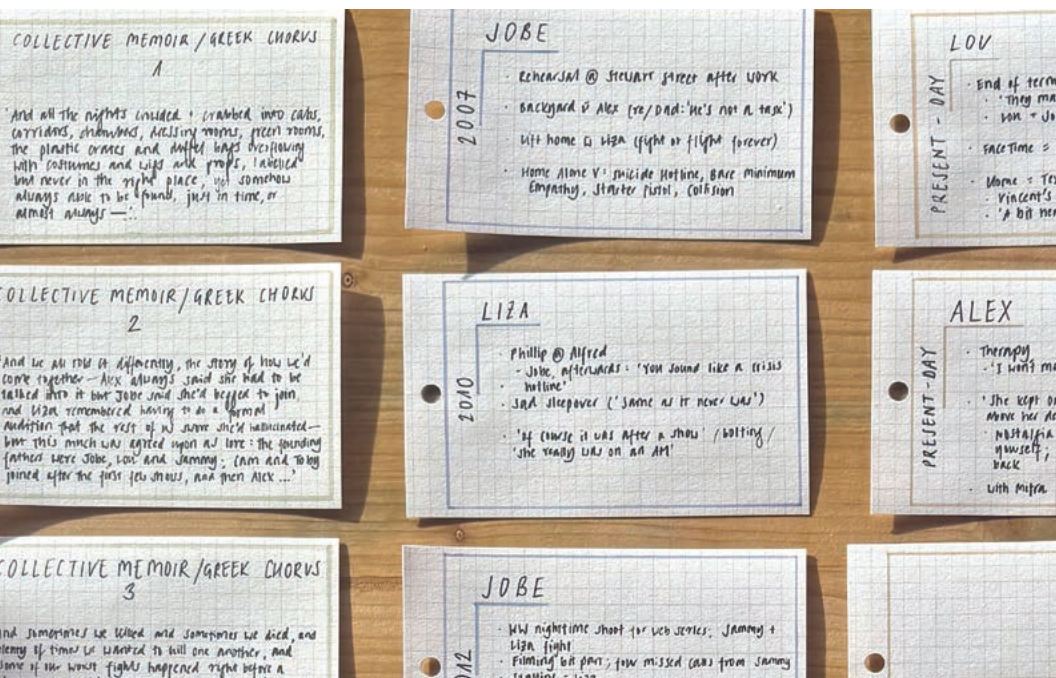 COLLECTIVE MEMOIR/GREEK CHORUS
1
'And all the nights crowded + crabbed into cabs,
corridors, chambers, dressing rooms, green rooms,
the plastic crates and duffel bags overflowing
with costumes and wigs and props, labelled
but never in the right place, yet somehow
always able to be found, just in time, or
almost always —'
COLLECTIVE MEMOIR/GREEK CHORUS
2
'And we all told it differently, the story of how we'd
come together – Alex always said she had to be
talked into it but Jobe said she'd begged to join,
and Liza remembered having to do a formal
audition that the rest of us swore she'd hallucinated –
but this much was agreed upon as lore: the founding
fathers were Jobe, Lou and Sammy; Cam and Toby
joined after the first few shows, and then Alex ...'
COLLECTIVE MEMOIR/GREEK CHORUS
3
and sometimes we killed and sometimes we died, and
plenty of times we wanted to kill one another, and
some of our worst fights happened right before a
JOBE
2007
· Rehearsal @ Stewart Street after work
· Backyard Alex (re/Dad: 'He's not a task')
· Lift home Liza (fight or flight forever)
· Home Alone V: Suicide Hotline, Bare minimum
Empathy, Starter Pistol, Collision
LIZA
2010
· Phillip @ Alfred
- Jobe, afterwards: 'You sound like a crisis
hotline'
· Sad sleepover ('Same as it never was')
· 'Of course it was after a show' / bolting /
'she really was on an AM'
JOBE
· WW nighttime shoot for web series; Sammy +
Liza fight
· Filming bit part; few missed calls from Sammy
LOU
PRESENT-DAY
· End of term
· 'They ma
· FaceTime =
· Vincent's
· 'A bit ner
ALEX
PRESENT-DAY
· Therapy
· 'I won't ma
· 'she kept on
nostalgia
yourself;
back
· with Mitra